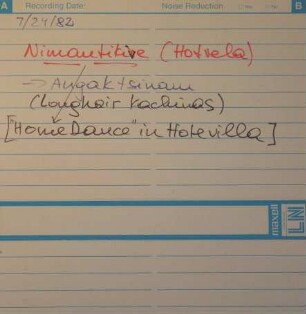 A Recording Date: Noise Reduction A
7/24/82
Nimantikive (Hotvela)
→ Angaktsinam
(Longhair Kachinas)
["Home Dance" in Hotevilla]
maxell LN